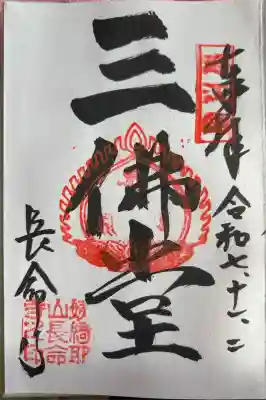 奉拝 令和七、十一、二
三佛堂
長命寺
姨綺耶
山長命
寺之印